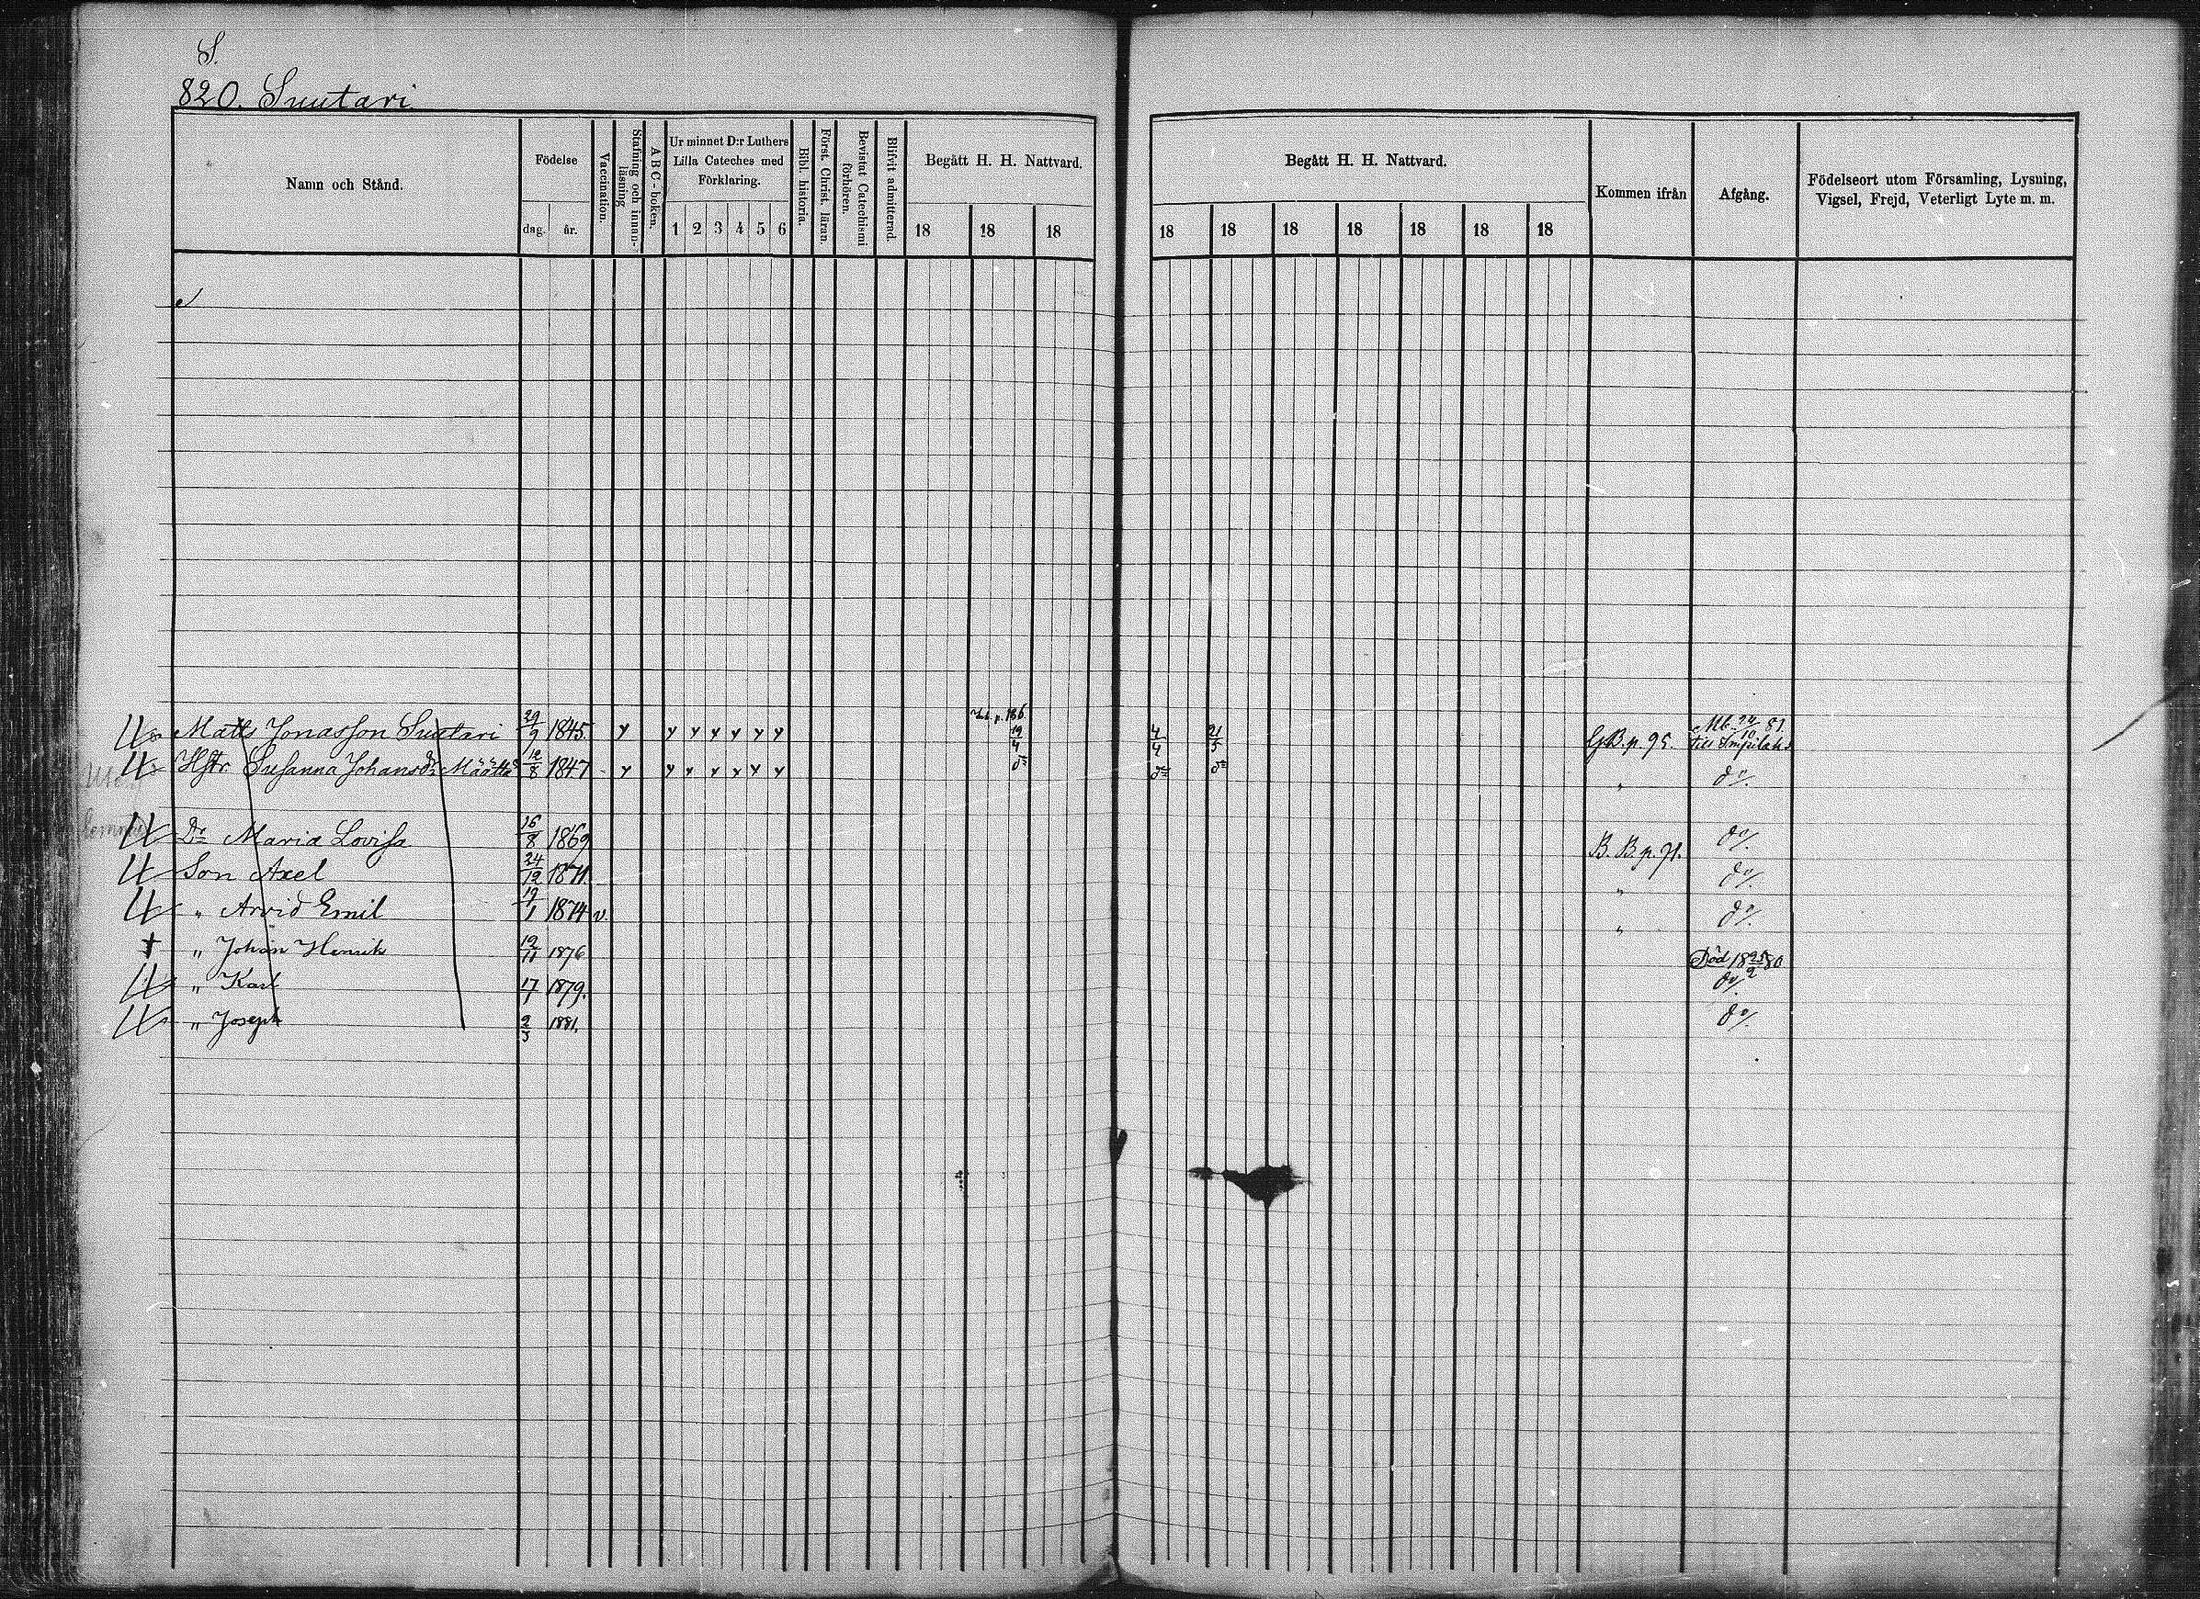 S.
820. Suutari
Namn och Stånd.
Födelse
dag. år.
Vaccination.
Stafning och innanläsning
A B C-boken.
Ur minnet D:r Luthers Lilla Cateches med Förklaring.
1 2 3 4 5 6
Bibl. historia.
Först. Christ. läran.
Bevistat Catechismi förhören.
Blifvit admitterad.
Begått H. H. Nattvard.
18 18 18
Begått H. H. Nattvard.
18 18 18 18 18 18 18
Kommen ifrån
Afgång.
Födelseort utom Församling, Lysning,
Vigsel, Frejd, Veterligt Lyte m. m.
Matts Jonasson Suutari 29/9 1845. y y y y y y y 19/4 4/4 21/5 GB. p. 95. Mb. 24/10 81. till Impilaks
Hstr. Susanna Johansdr Määttä 12/8 1847 y y y y y y y do do do " do/.
Dr Maria Lovisa 16/8 1869 B. B. p. 71. do/.
Son Axel 24/12 1871 " do/.
" Arvid Emil 19/1 1874 v. " do/.
" Johan Henrik 12/11 1876 Död 18 25/2 80
" Karl 17/7 1879. do/.
" Joseph 2/3 1881. do/.